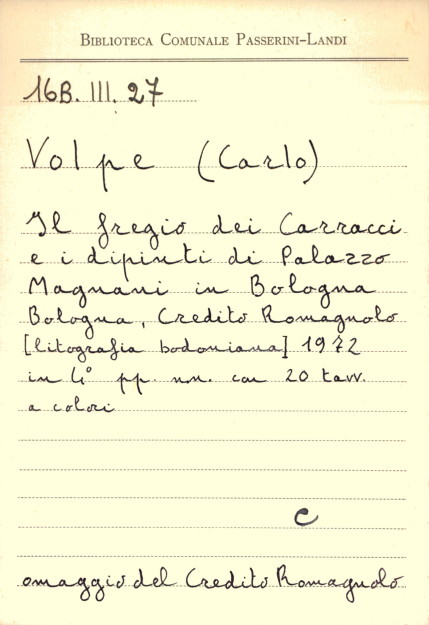 BIBLIOTECA COMUNALE PASSERINI-LANDI
16B. III. 27
Volpe (Carlo)
Il fregio dei Carracci
e i dipinti di Palazzo
Magnani in Bologna
Bologna, Credito Romagnolo
[litografia bodoniana] 1972
in 4° pp. n.n. con 20 tavv.
a colori
C
omaggio del Credito Romagnolo